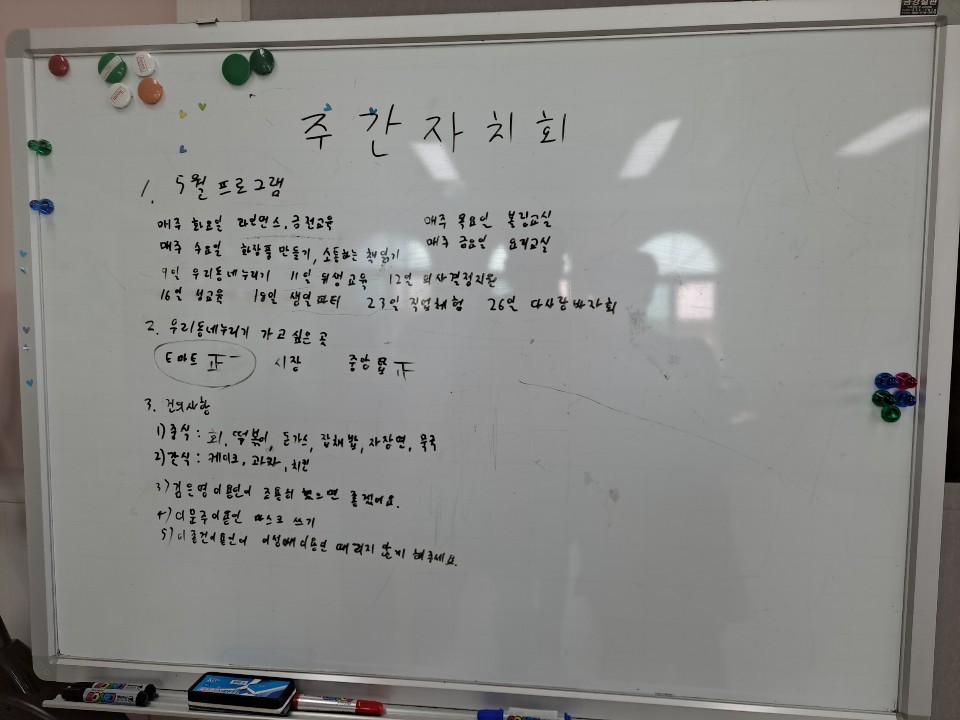 주간자치회
1. 5월 프로그램
매주 화요일 라인댄스, 금전교육 매주 목요일 볼링교실
매주 수요일 화장품 만들기, 소통하는 책읽기 매주 금요일 요리교실
9일 우리동네누리기 11일 위생교육 12일 의사결정지원
16일 성교육 18일 생일파티 23일 직업체험 26일 다사랑바자회
2. 우리동네누리기 가고 싶은 곳
E마트 正一 시장 중앙몰 正
3. 건의사항
1) 중식 : 회, 떡볶이, 돈가스, 잡채밥, 자장면, 묵국
2) 간식 : 케이크, 과자, 치킨
3) 김은영이용인이 조용히 했으면 좋겠어요.
4) 이문주이용인 마스크 쓰기
5) 이종건이용인이 이용인 때리지 않게 해주세요.